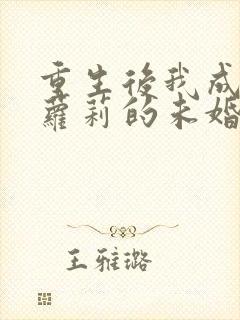 重生後我成
蘿莉的未婚
王雅璐